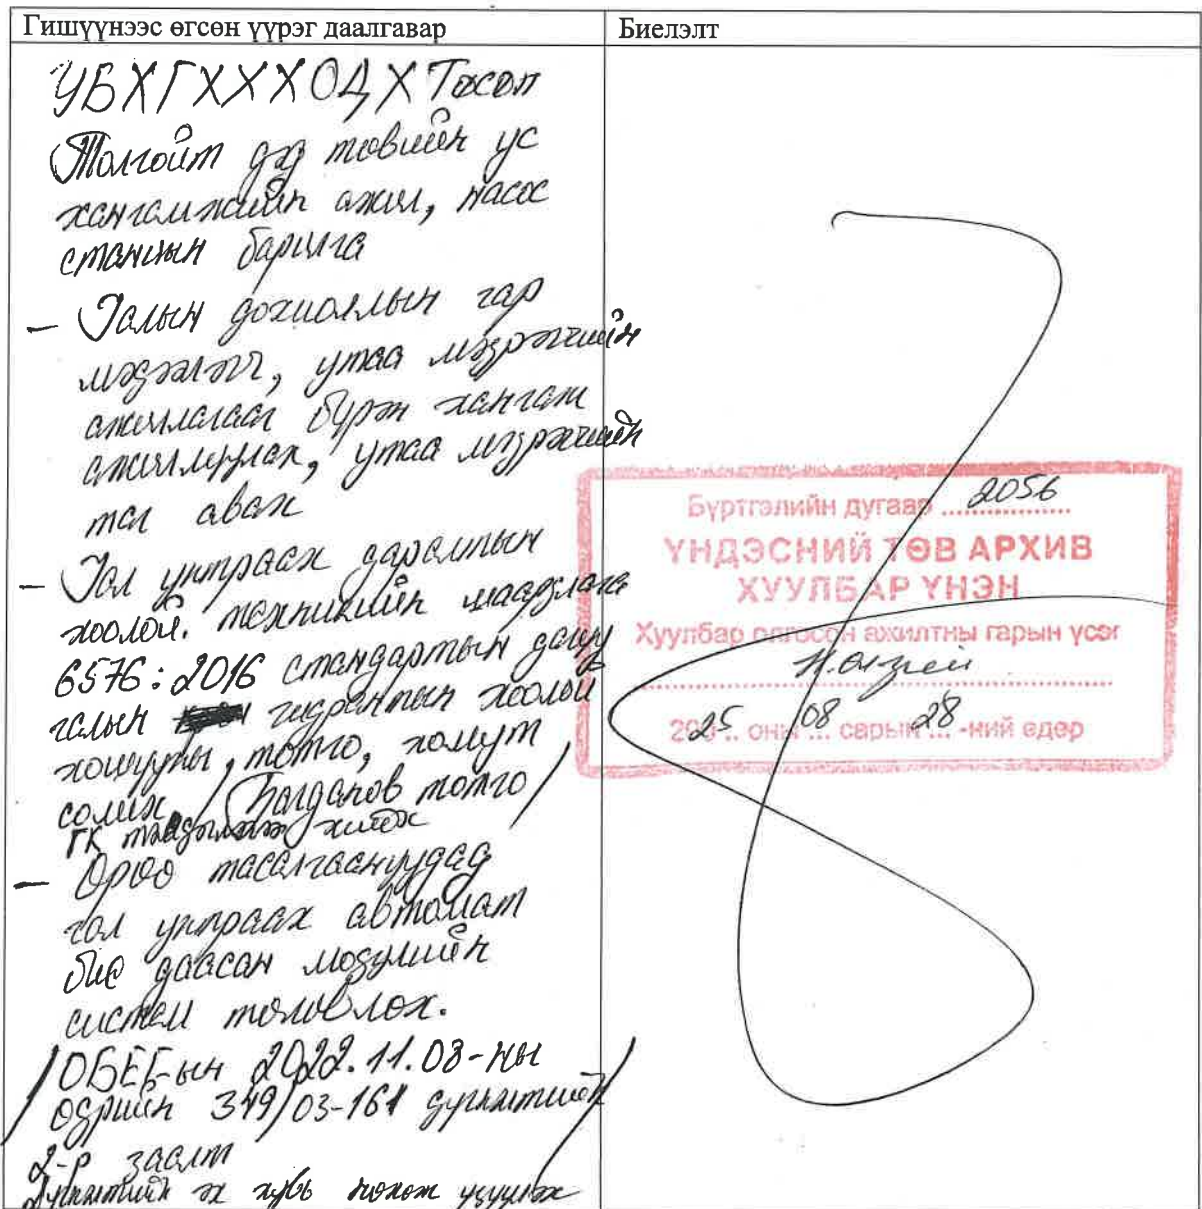 Гишүүнээс өгсөн үүрэг даалгавар
Биелэлт
УБХГХХХОДХ Төсөл
Толгойт дэд төвийн ус
хангамжийн ажил, насос
станцын барилга
- Галын дохиоллын гар
мэдээлэгч, утаа мэдрэгчийн
ажиллагааг бүрэн хангаж
ажиллуулах, утаа мэдрэгчийн
таг авах
- Гал унтраах даралтын
хоолой. техникийн шаардлага
6576:2016 стандартын дагуу
галын гидрантын хоолой
хошууны, толго, хомут
солих / Богданов толго /
ГК тэмдэглэгээ хийх
- Өрөө тасалгаануудад
гал унтраах автомат
бие даасан модулийн
систем төлөвлөх.
/ ОБЕГ-ын 2022.11.03-ны
өдрийн 349/03-161 дүгнэлтийн
2-р заалт /
Дүгнэлтийн эх хувь нөхөж үзүүлэх
Бүртгэлийн дугаар 2056
ҮНДЭСНИЙ ТӨВ АРХИВ
ХУУЛБАР ҮНЭН
Хуулбар олгосон ажилтны гарын үсэг
2025 оны 08 сарын 28 -ний өдөр